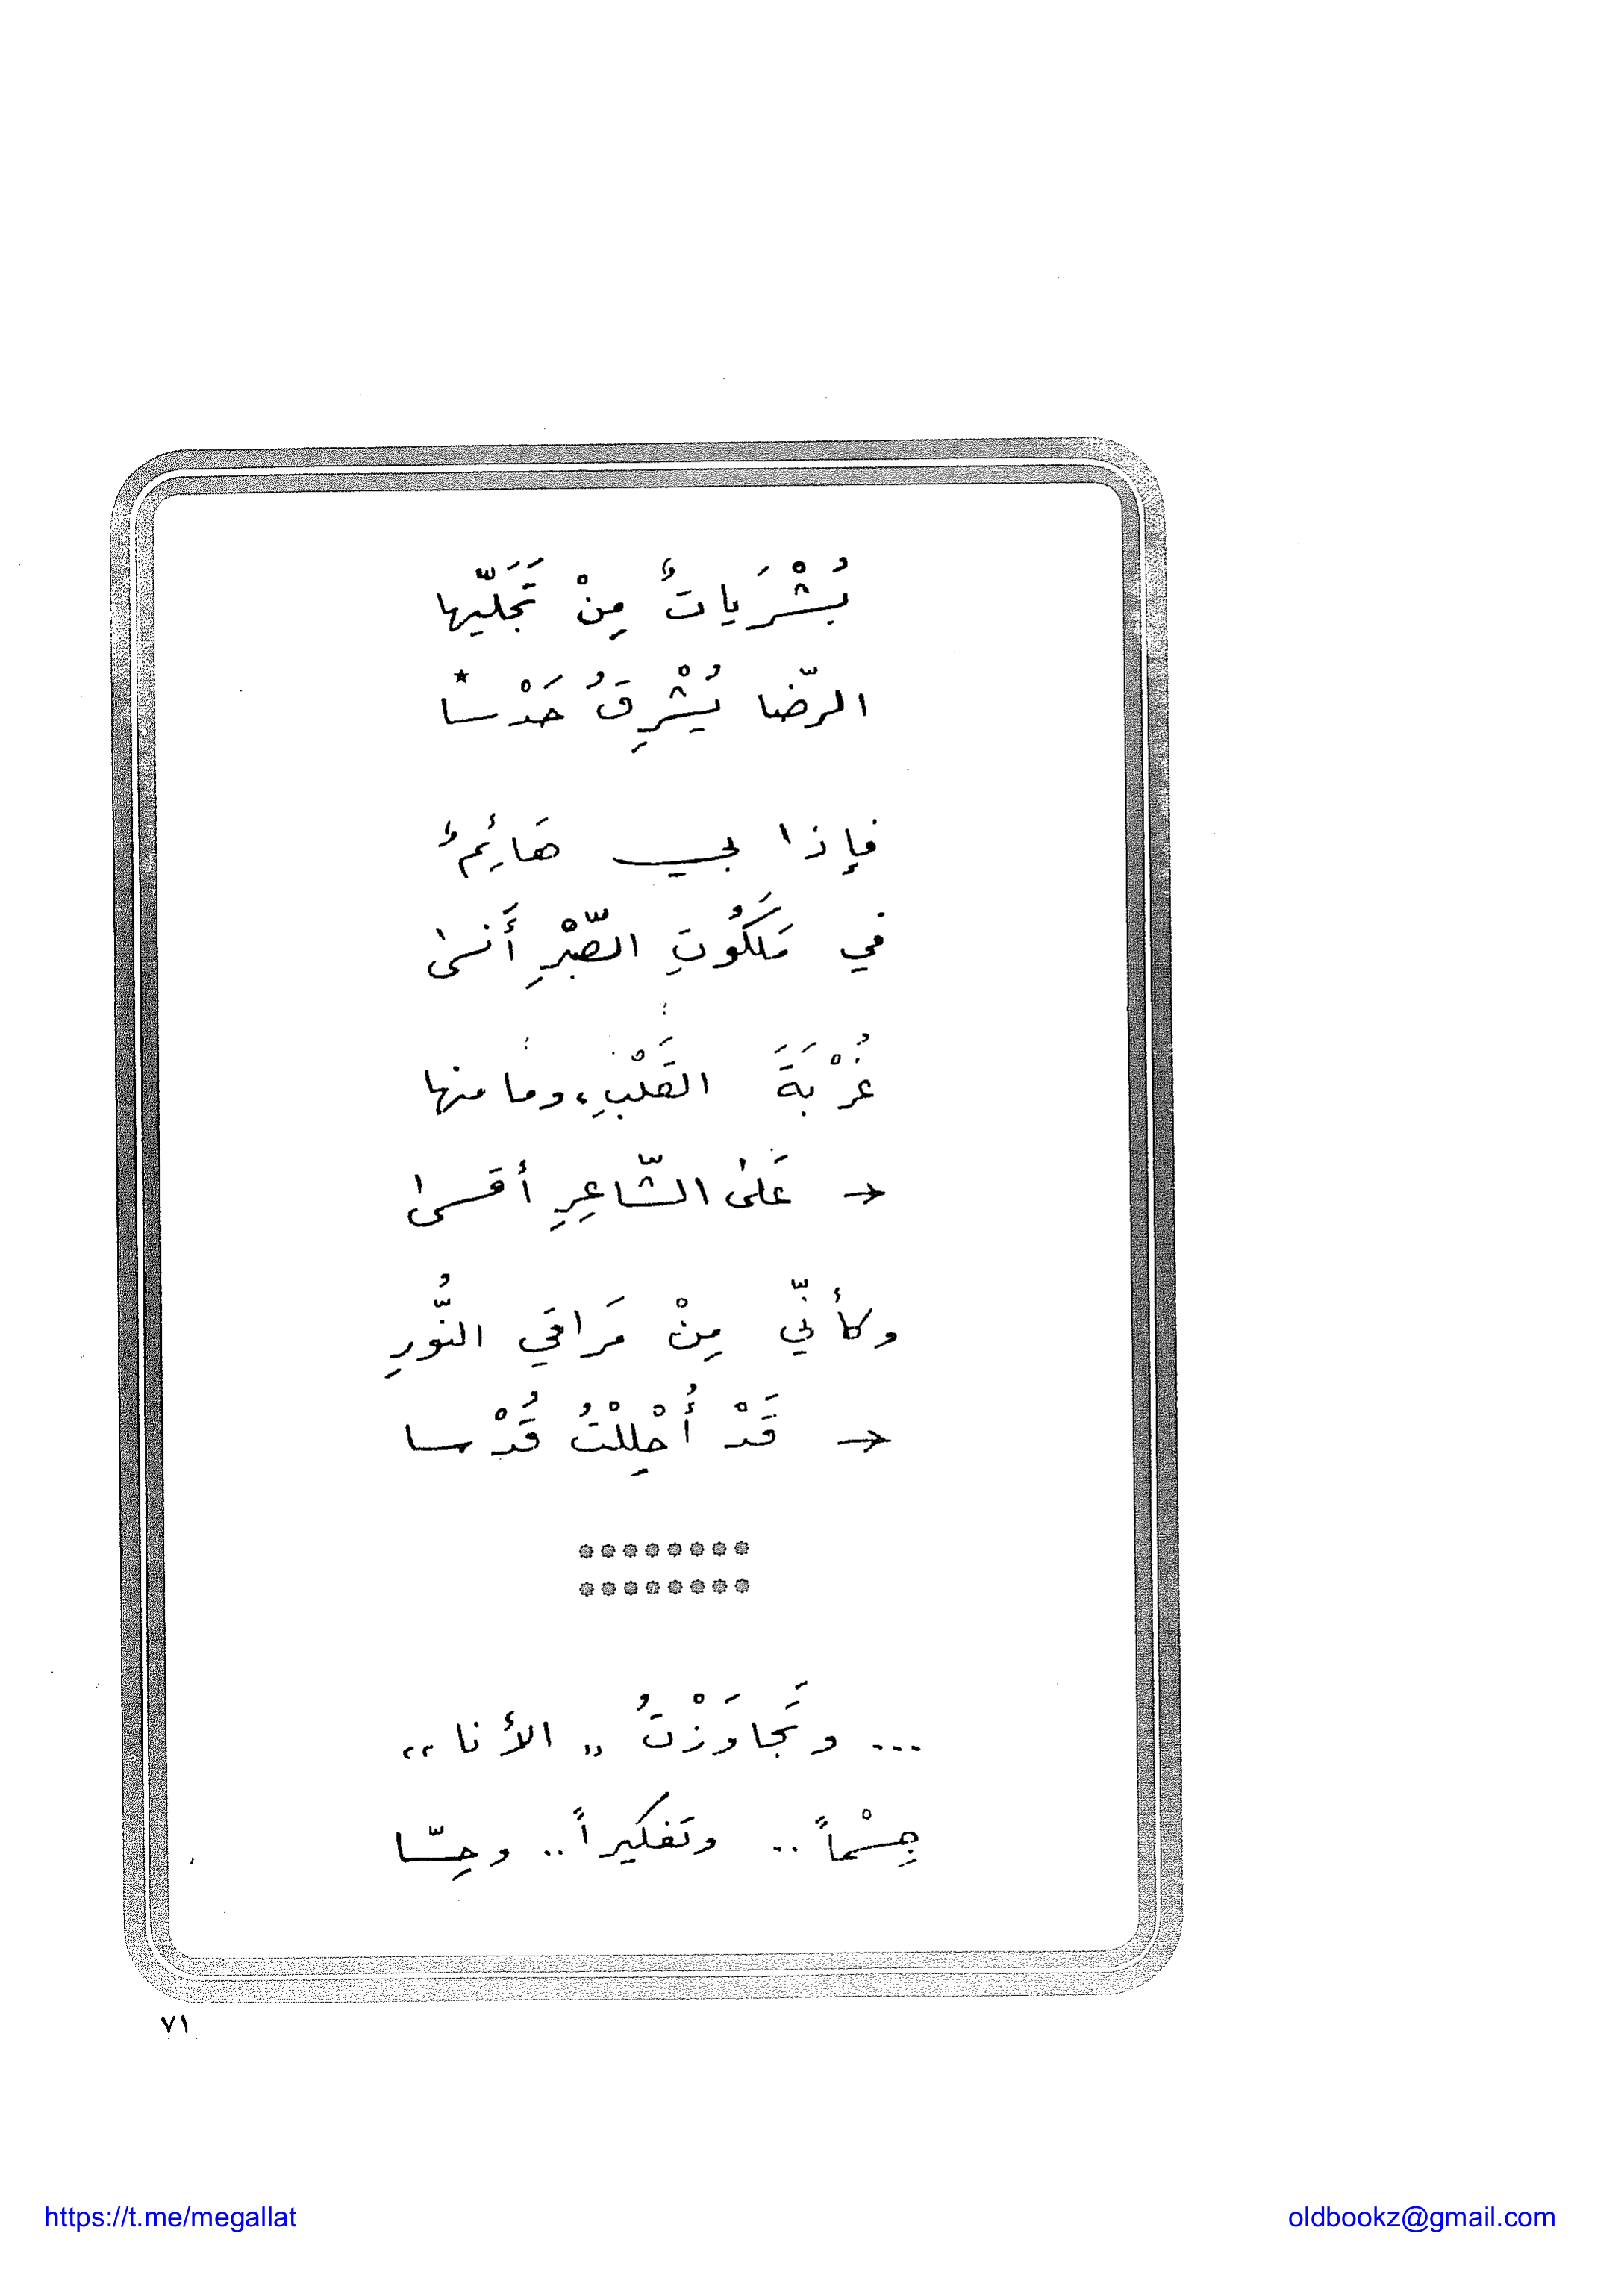 بُشْرَيَاتٌ مِنْ تَجَلّيها
الرّضا يُشْرِقُ حَدْسا*
فإذا بي هَائِمٌ
في مَلَكُوتِ الصّبْرِ أَنسىٰ
غُرْبَةَ القَلْبِ، وما منها
← عَلىٰ الشّاعِرِ أقسىٰ
وكأنّي مِنْ مَراقي النُّورِ
← قَدْ أُحْلِلْتُ قُدْسا
... وتَجاوَزْتُ „ الأنا “
جِسْماً .. وتَفكيراً .. وحِسّا
٧١
https://t.me/megallat oldbookz@gmail.com